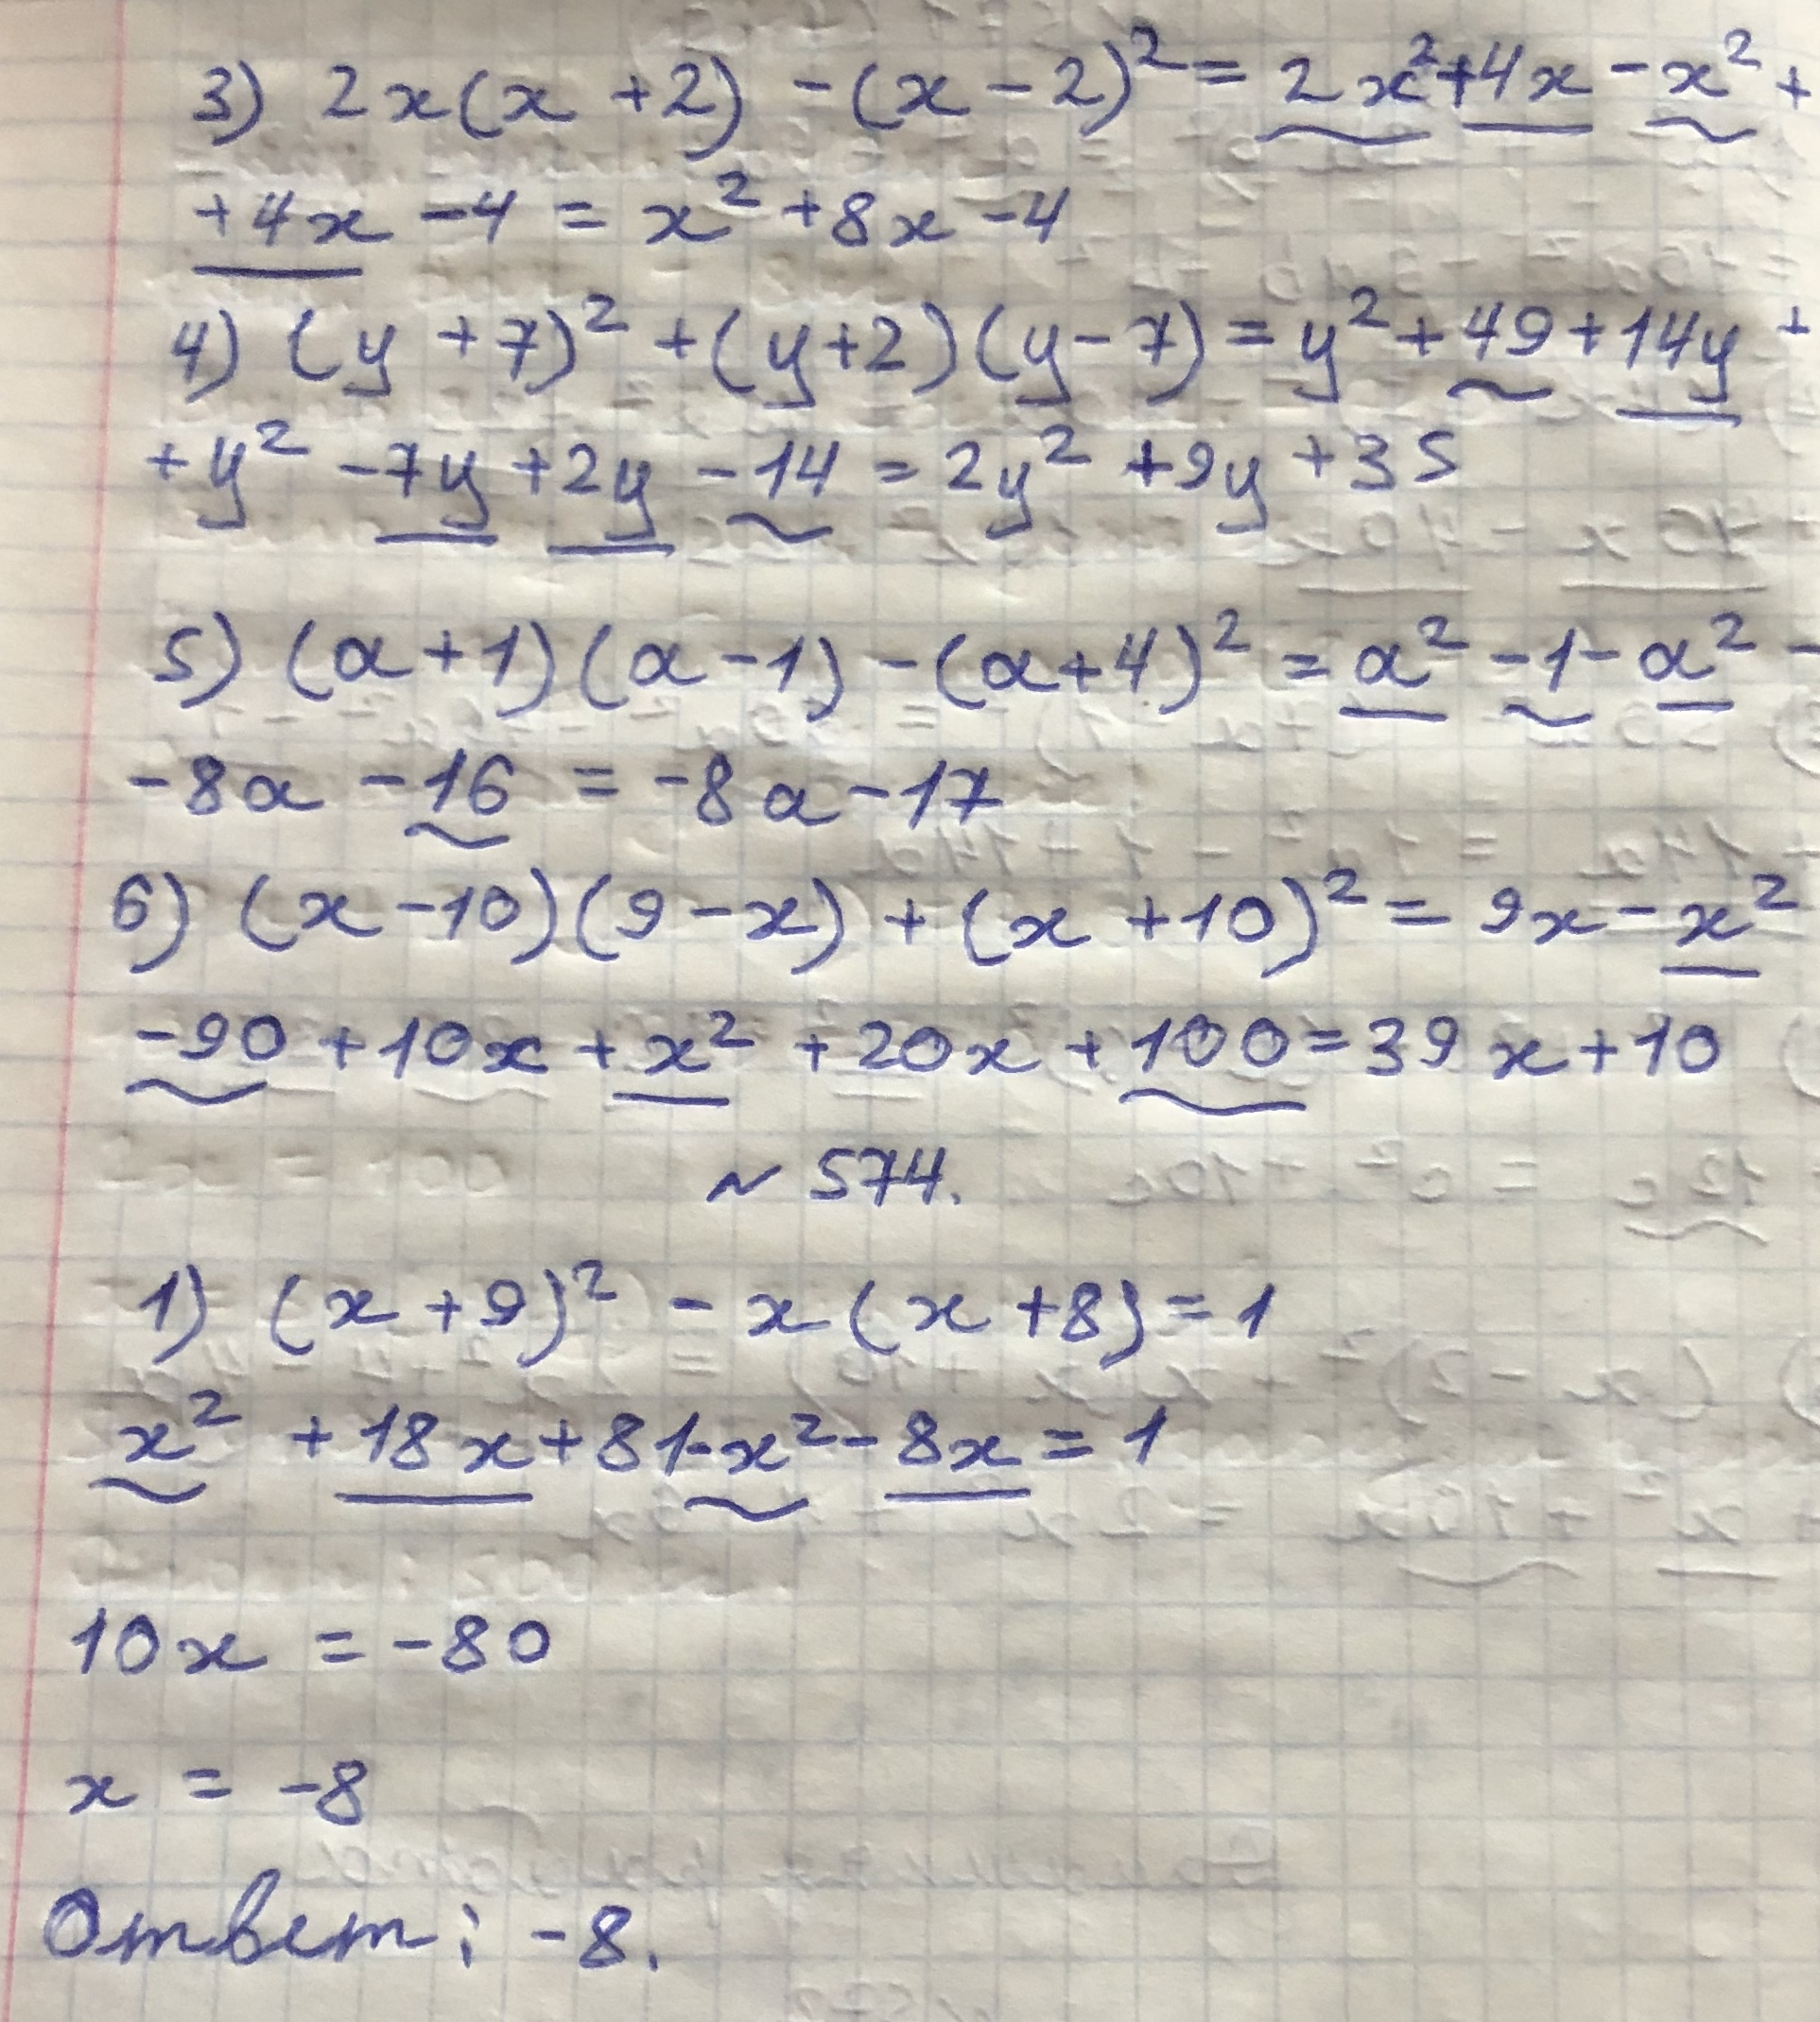 3) 2x(x+2) -(x-2)² = 2x²+4x -x² +
+4x -4 = x² +8x -4
4) (y+7)² +(y+2)(y-7) = y² +49 +14y +
+y² -7y +2y -14 = 2y² +9y +35
5) (a+1)(a-1) -(a+4)² = a² -1 - a² -
-8a -16 = -8a -17
6) (x-10)(9-x) + (x+10)² = 9x - x²
-90 +10x + x² +20x +100 = 39x +10
~ 574.
1) (x+9)² - x(x+8) = 1
x² +18x +81 - x² - 8x = 1
10x = -80
x = -8
Ответ: -8.